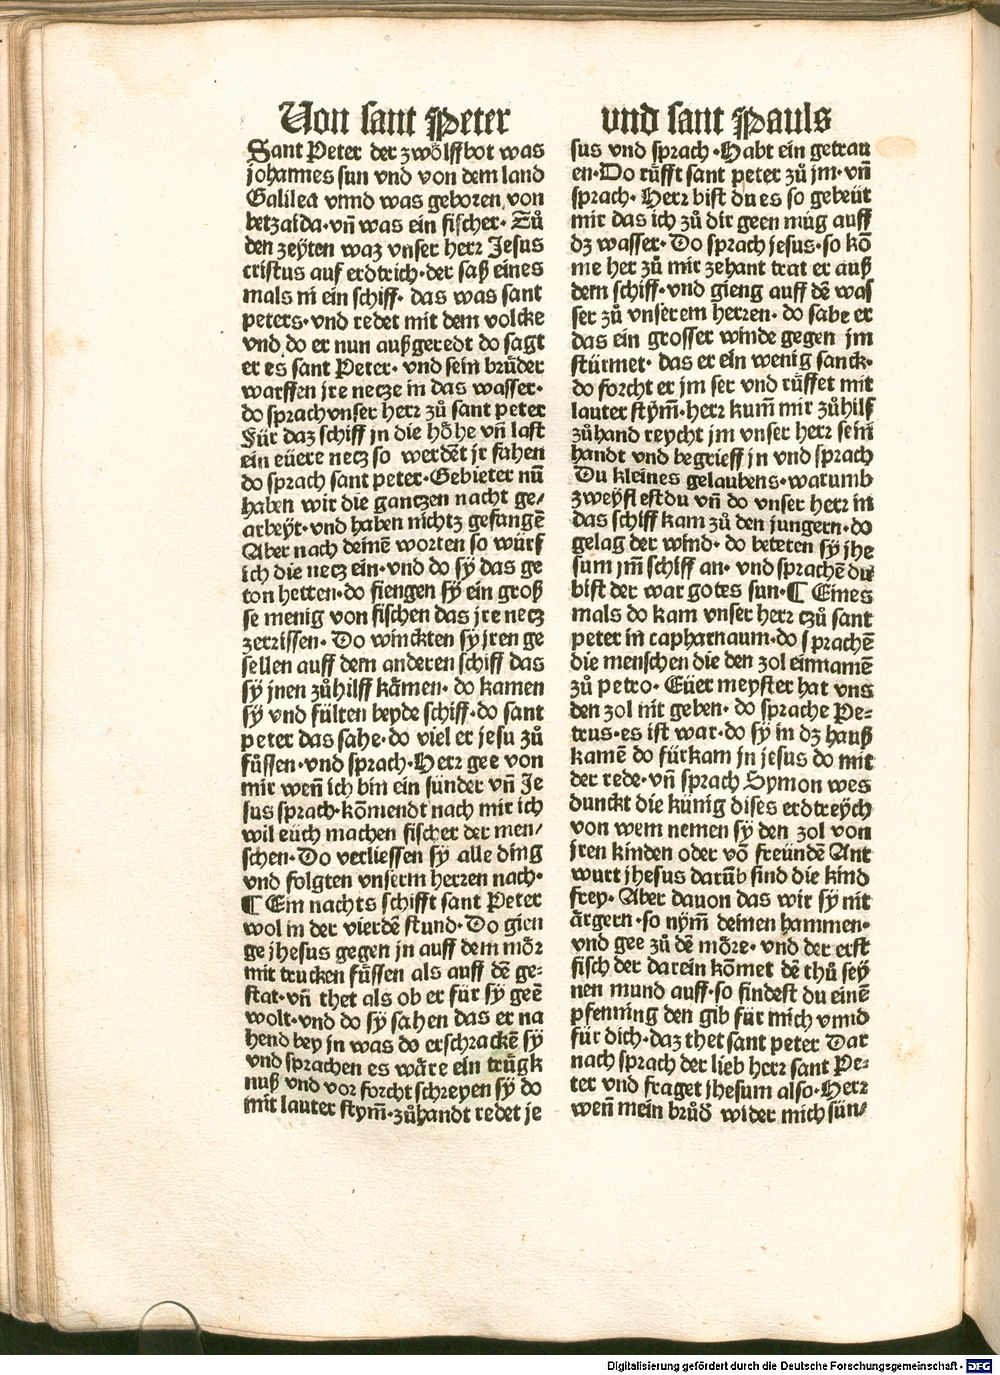 Von sant Peter
Sant Peter der zwölffbot was
johannes sun vnd von dem land
Galilea vnnd was geboren von
betzaida·vn̄ was ein fischer· Zů
den zeÿten waz vnser herr Jesus
cristus auf erdtrich·der saß eines
mals in ein schiff· das was sant
peters·vnd redet mit dem volcke
vnd do er nun außgeredt do sagt
er es sant Peter· vnd sein brůder
warffen jre necze in das wasser·
do sprach vnser herr zů sant peter
Für daz schiff in die höhe vn̄ last
ein eüere necz so werdēt jr fahen
do sprach sant peter·Gebieter nū
haben wir die ganczen nacht ge/
arbeÿt·vnd haben nichtz gefangē
Aber nach deinē worten so würf
ich die necz ein·vnd do sÿ das ge
ton hetten·do fiengen sÿ ein groß
se menig von fischen das jre necz
zerrissen· Do winckten sÿ jren ge
sellen auff dem anderen schiff das
sÿ jnen zůhilff kämen· do kamen
sÿ vnd fülten beyde schiff·do sant
peter das sahe·do viel er jesu zů
füssen·vnd sprach·Herr gee von
mir wen̄ ich bin ein sünder vn̄ Je
sus sprach·kōmendt nach mir ich
wil eüch machen fischer der men/
schen·Do verliessen sÿ alle ding
vnd folgten vnserm herren nach·
¶ Ein nachts schifft sant Peter
wol in der vierdē stund·Do gien
ge jhesus gegen jn auff dem mör
mit trucken füssen als auff dē ge⸗
stat·vn̄ thet als ob er für sÿ geē
wolt·vnd do sÿ sahen das er na
hend bey in was do erschrackē sÿ
vnd sprachen es wäre ein trügk
nuß vnd vor forcht schreyen sÿ do
mit lauter stym̄·zůhandt redet je
vnd sant Pauls
sus vnd sprach·Habt ein getrau
en·Do růfft sant peter zů jm·vn̄
sprach· Herr bist du es so gebeüt
mir das ich zů dir geen müg auff
dz wasser·Do sprach jesus·so kō
me her zů mir zehant trat er auß
dem schiff·vnd gieng auff dē was
ser zů vnserem herren· do sahe er
das ein grosser winde gegen jm
stürmet· das er ein wenig sanck·
do forcht er jm ser vnd růffet mit
lauter stym̄·herr kum̄ mir zůhilf
zůhand reycht jm vnser herr sein̄
handt vnd begrieff jn vnd sprach
Du kleines gelaubens·warumb
zweÿflest du vn̄ do vnser herr in
das schiff kam zů den jungern·do
gelag der wind· do beteten sÿ jhe
sum jm̄ schiff an· vnd sprachē du
bist der war gotes sun·¶ Eines
mals do kam vnser herr czů sant
peter in capharnaum·do sprachē
die menschen die den zol einnamē
zů petro· Eüer meyster hat vns
den zol nit geben· do sprache Pe⸗
trus·es ist war·do sÿ in dz hauß
kamē do fürkam jn jesus do mit
der rede·vn̄ sprach Symon wes
dunckt die künig dises erdtreÿch
von wem nemen sÿ den zol von
jren kinden oder vō freündē Ant
wurt jhesus darūb sind die kind
frey· Aber dauon das wir sÿ nit
ärgern·so nym̄ deinen hammen·
vnd gee zů dē möre· vnd der erst
fisch der darein kōmet dē thů seÿ
nen mund auff·so findest du einē
pfenning den gib für mich vnnd
für dich·daz thet sant peter Dar
nach sprach der lieb herr sant Pe⸗
ter vnd fraget jhesum also·Herr
wen̄ mein brůd̄ wider mich sün/
Digitalisierung gefördert durch die Deutsche Forschungsgemeinschaft - DFG